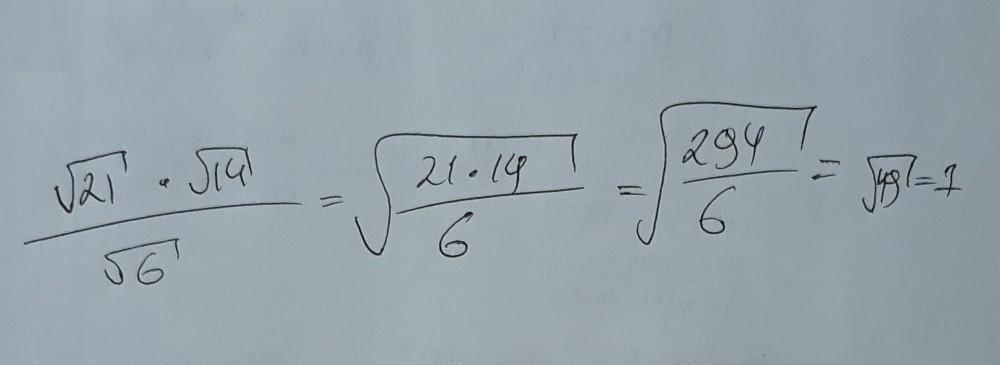 \frac{\sqrt{21} \cdot \sqrt{14}}{\sqrt{6}} = \sqrt{\frac{21 \cdot 14}{6}} = \sqrt{\frac{294}{6}} = \sqrt{49} = 7